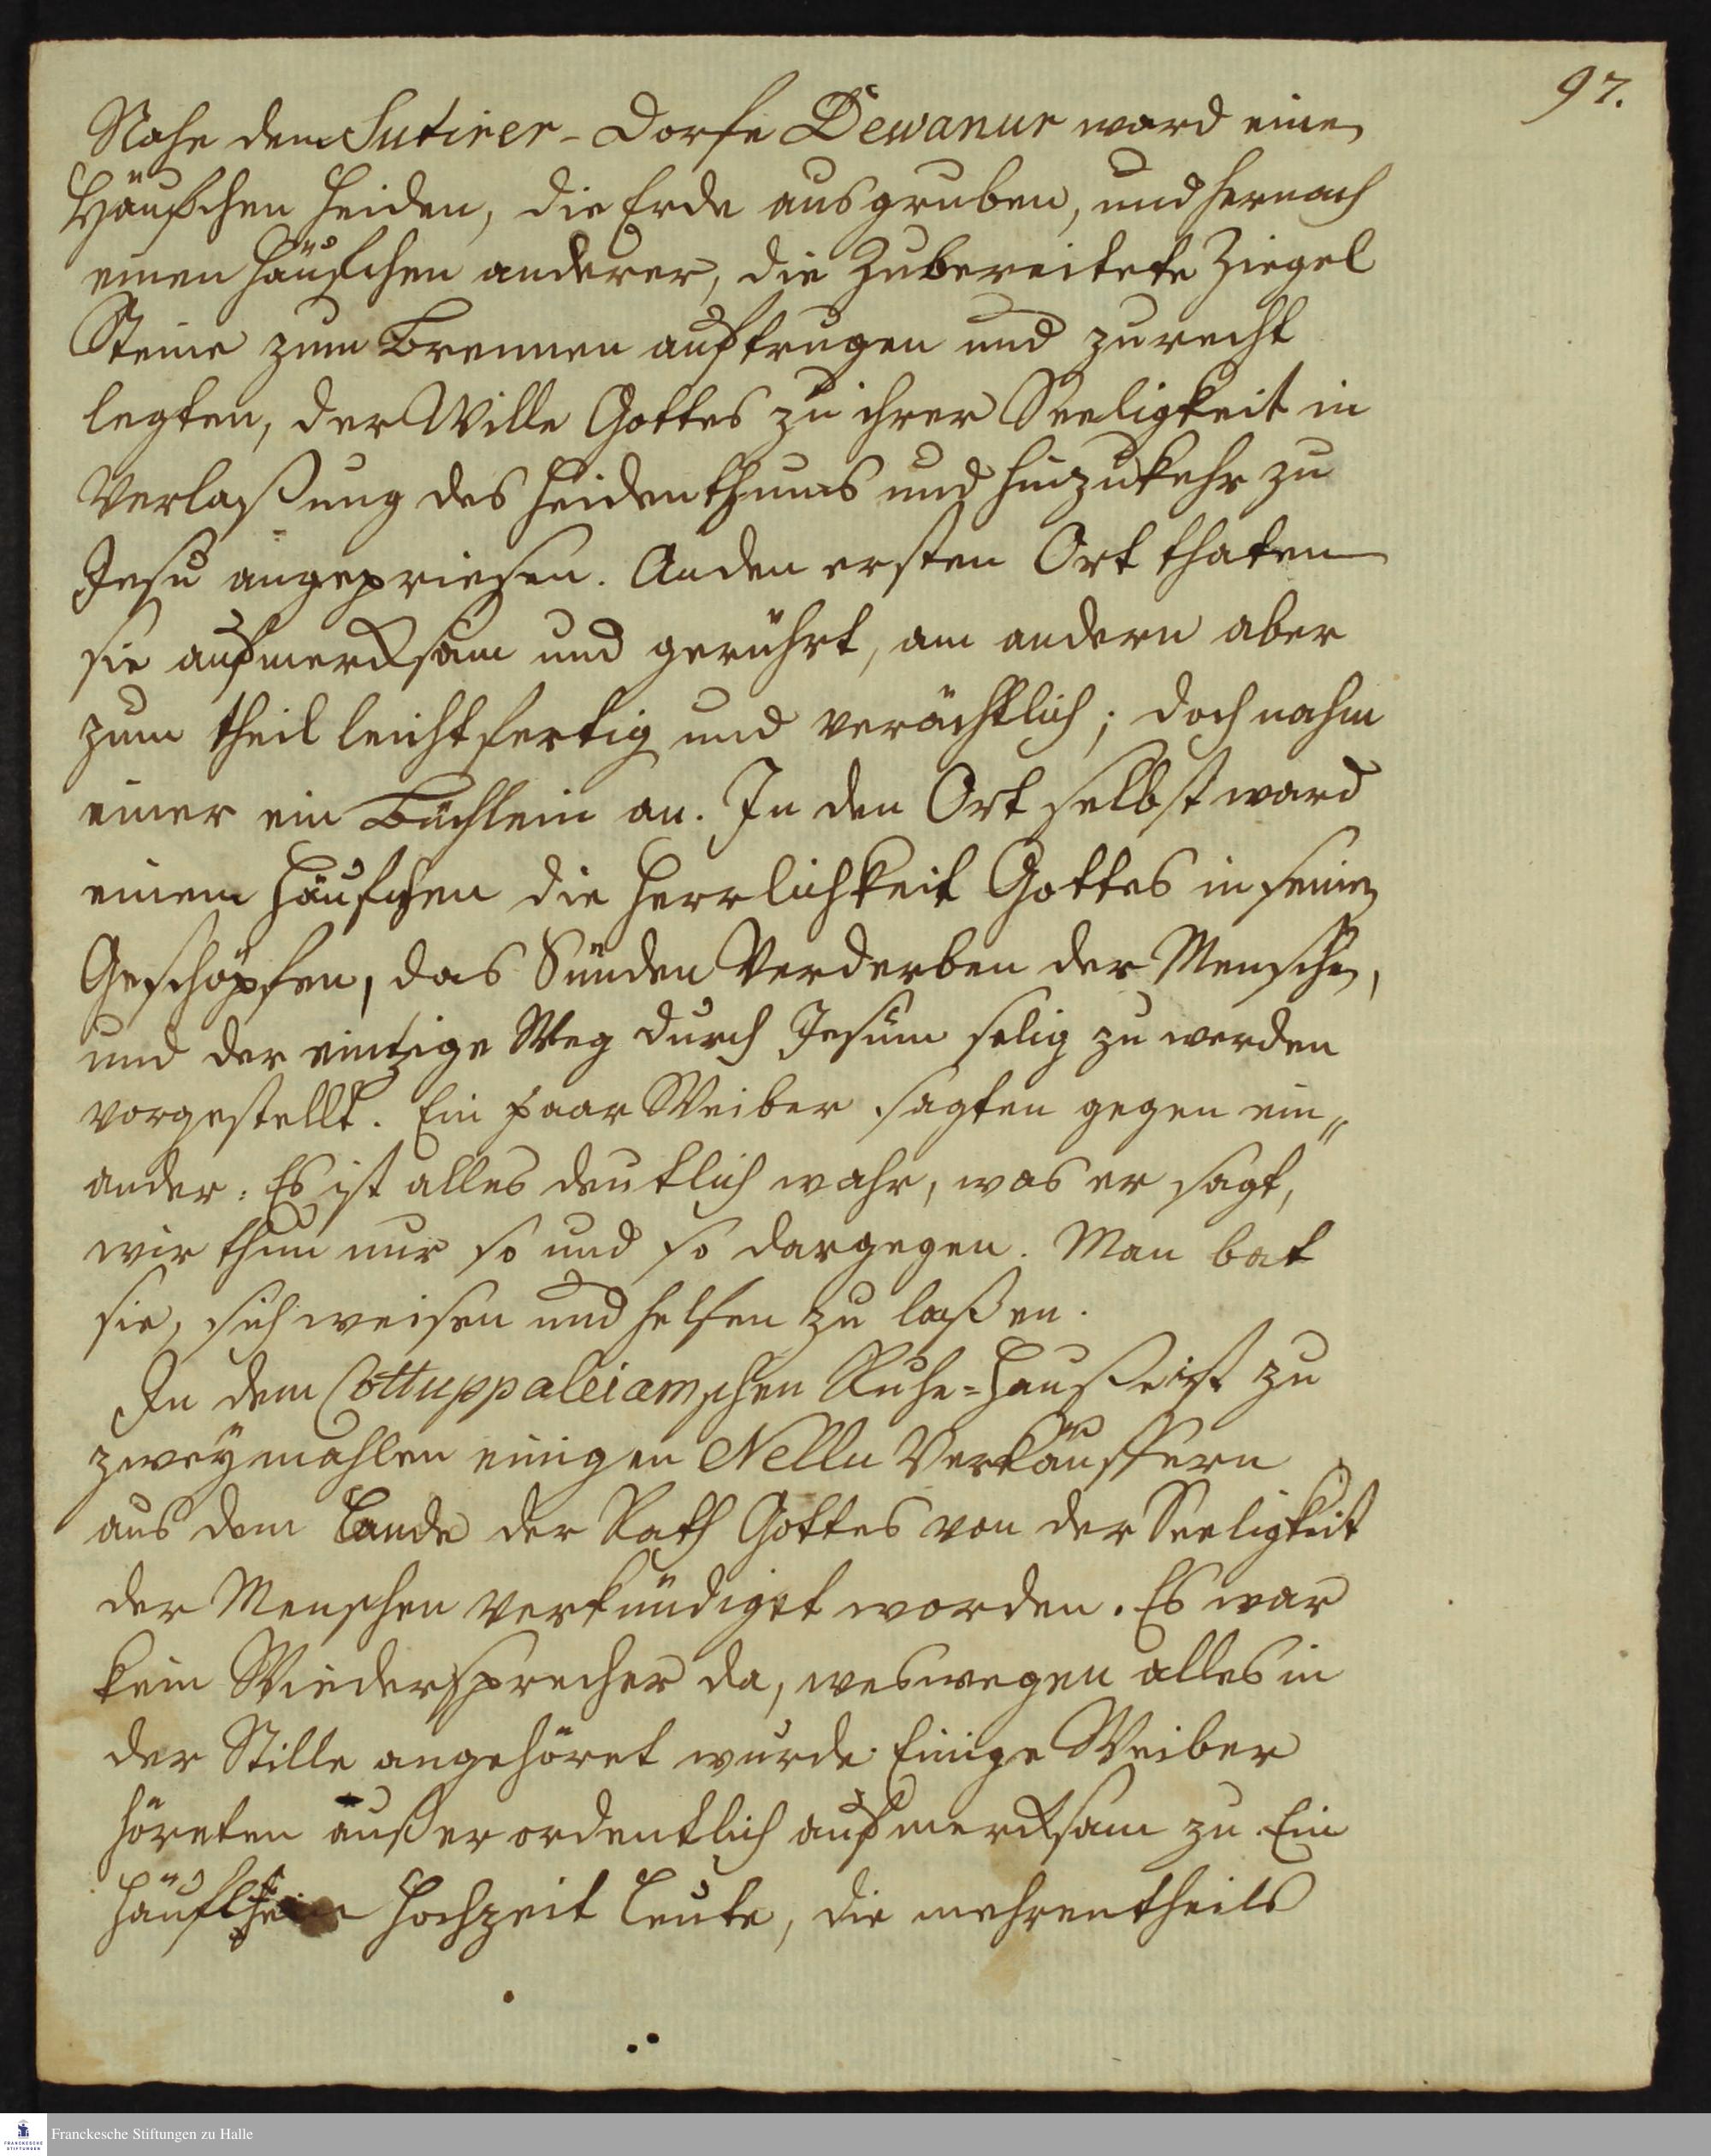 97.
Nahe dem Sutirer-Dorfe Dewanur ward einen
Häufchen Heiden, die Erde ausgruben, und hernach
einen Häufchen anderer, die Zubereitete Ziegel
Steine zum Brennen auftrugen und zurecht
legten, der Wille Gottes zu ihrer Seeligkeit in
Verlaßung des Heidenthums und Hinzukehr zu
Jesu angepriesen. An den ersten Ort thaten
sie aufmercksam und gerührt, am andern aber
zum theil leichtfertig und verächtlich; doch nahm
einer ein Büchlein an. In den Ort selbst ward
einem Häufchen die Herrlichkeit Gottes in seinen
Geschöpfen, das Sünden Verderben der Menschen,
und der eintzige Weg durch Jesum selig zu werden
vorgestellt. Ein paar Weiber sagten gegen ein„
ander: Es ist alles deutlich wahr, was er sagt,
wir thun nur so und so dargegen. Man bat
sie, sich weisen und helfen zu laßen.
In dem Cottuppaleiamschen Ruhe-Hause ist zu
zweymahlen einigen Nellu Verkäuffern
aus dem Lande der Rath Gottes von der Seeligkeit
der Menschen verkündiget worden. Es war
kein Wiedersprecher da, weswegen alles in
der Stille angehöret wurde. Einige Weiber
höreten außerordentlich aufmercksam zu. Ein
Hochzeit Leute, die mehrentheils
Franckesche Stiftungen zu Halle
FRANCKESCHE
STIFTUNGEN